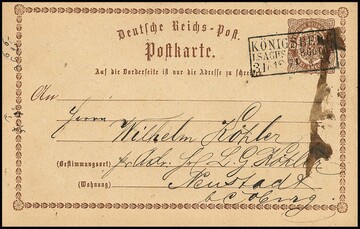 Deutsche Reichs-Post.
Postkarte.
Auf die Vorderseite ist nur die Adresse zu schreiben
KÖNIGSBERG
An
Herrn Wilhelm Köhler
(Bestimmungsort) pr. Adr. L. G. Köhler
(Wohnung) Neustadt
b. Coburg